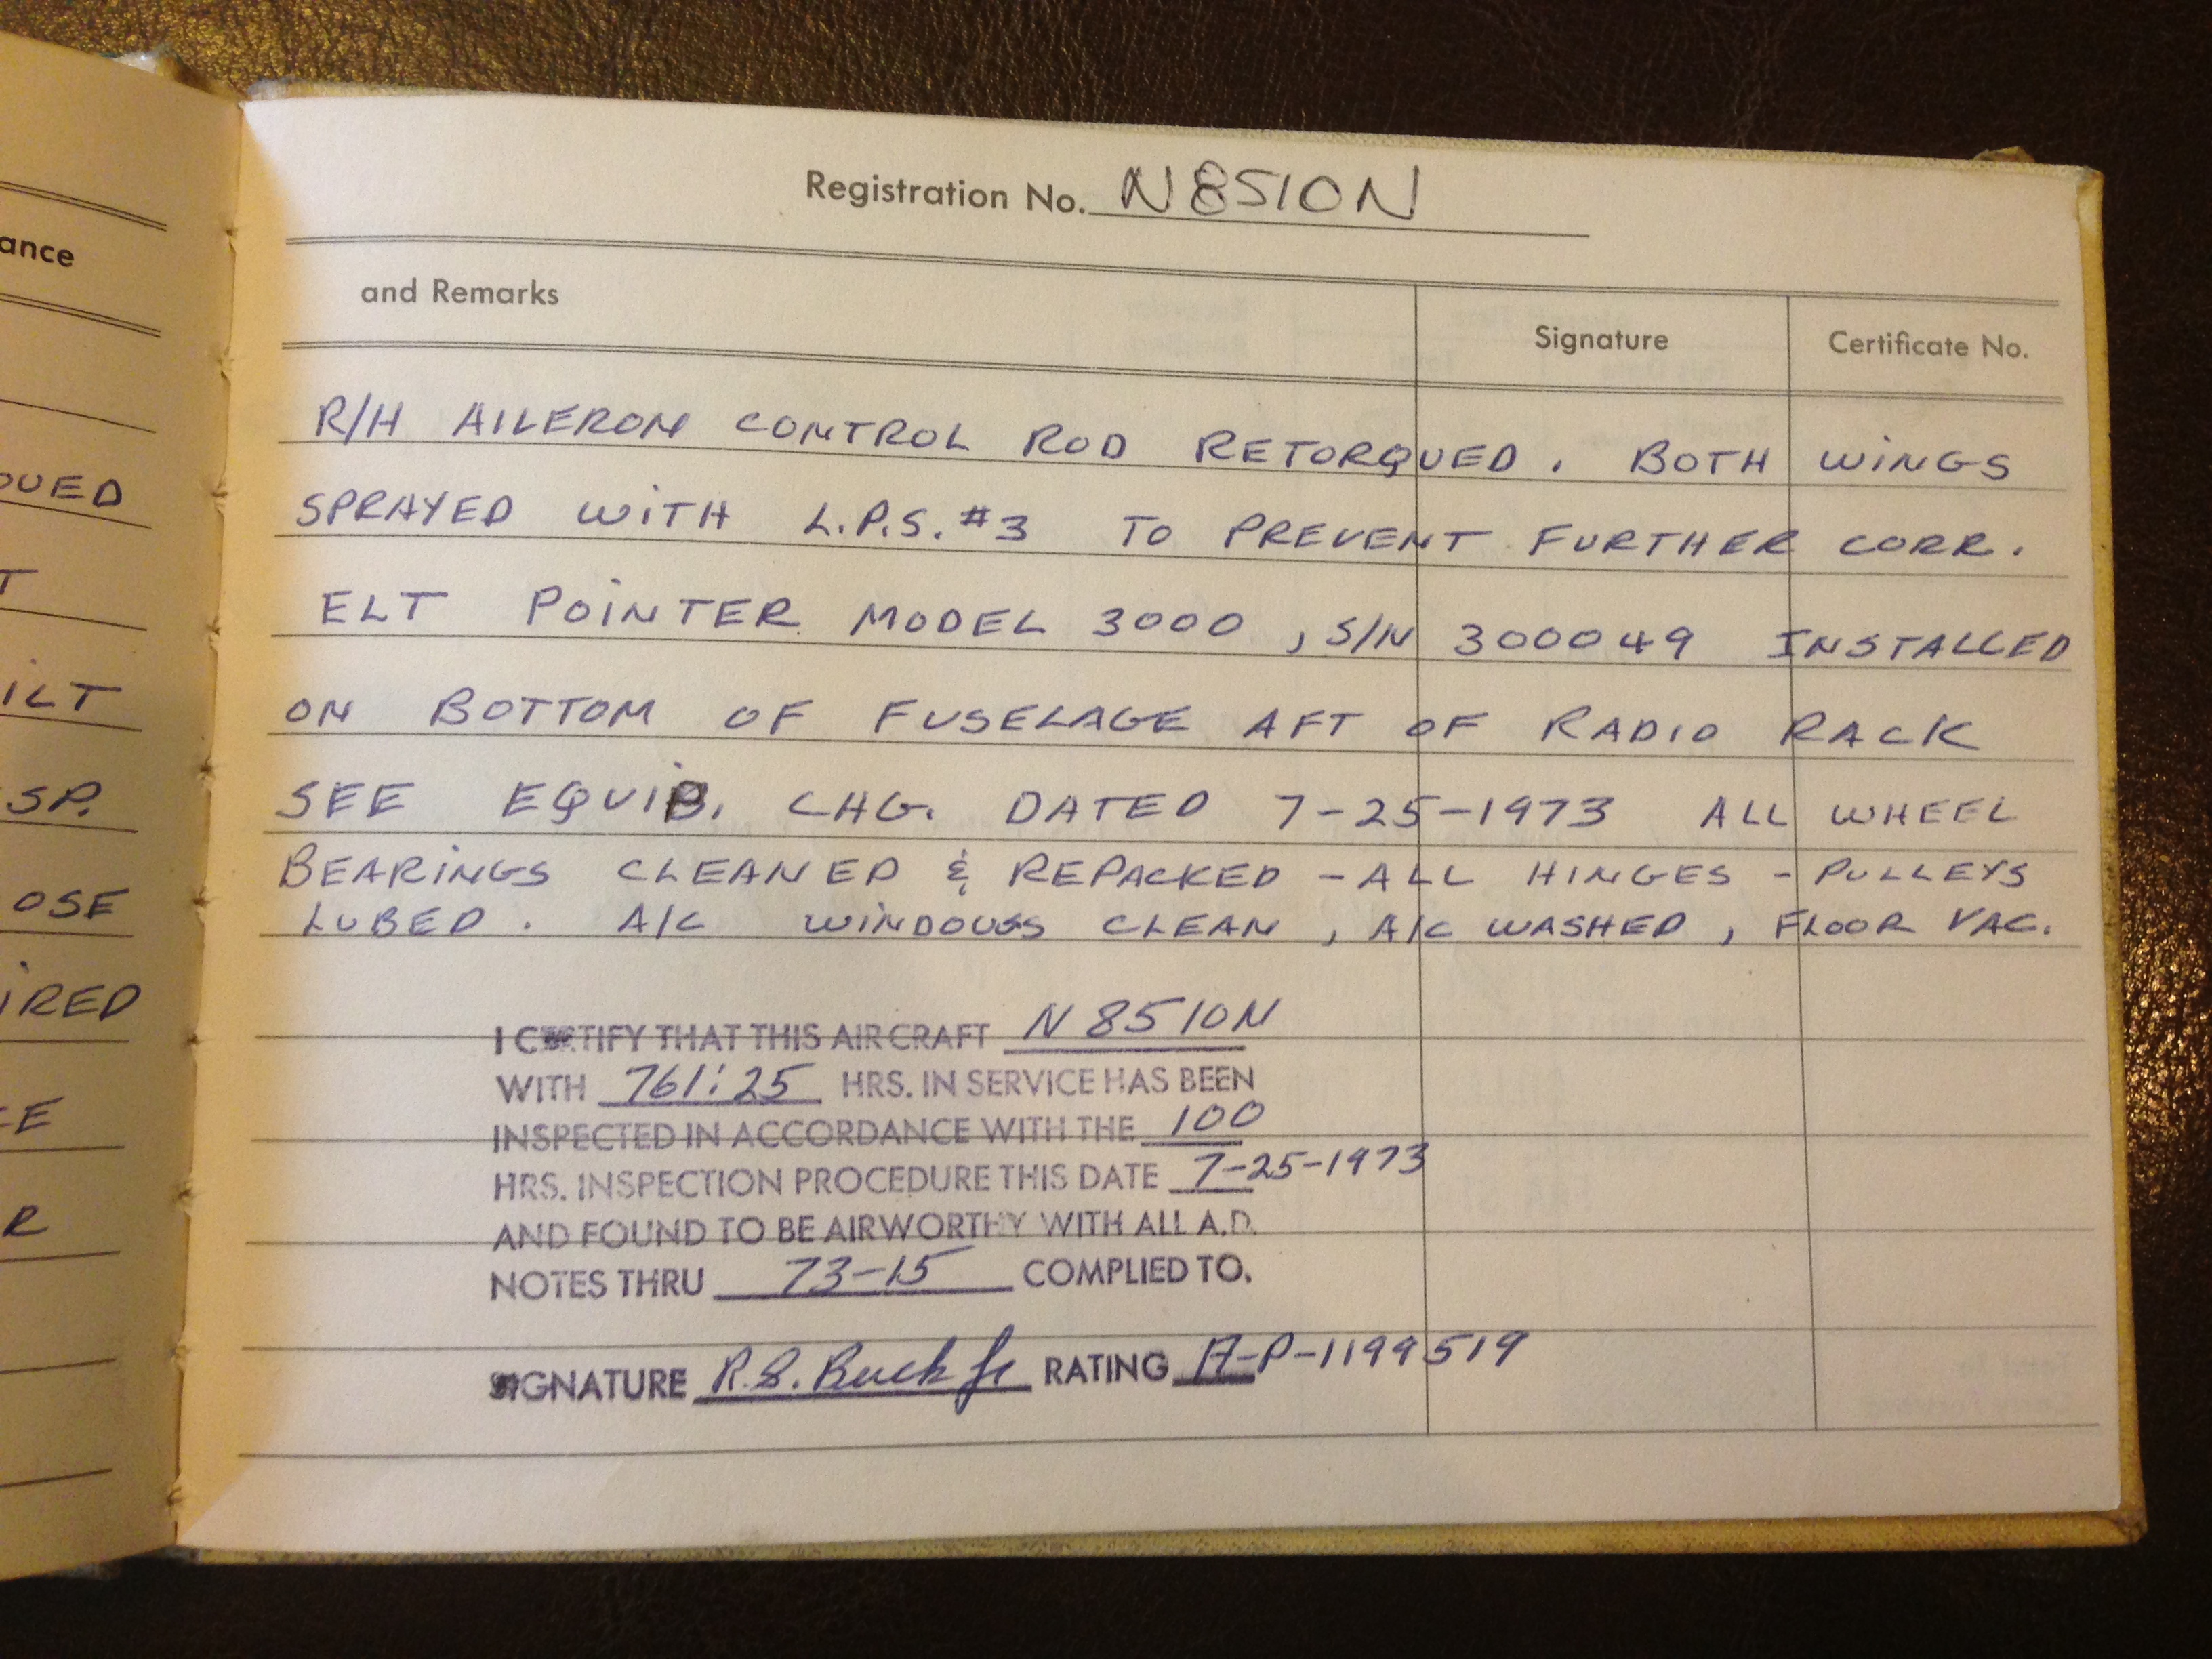 ance
OUED
T
ILT
SP.
OSE
IRED
E
R
Registration No. N8510N
and Remarks
Signature
Certificate No.
R/H AILERON CONTROL ROD RETORQUED. BOTH WINGS
SPRAYED WITH L.P.S. #3 TO PREVENT FURTHER CORR.
ELT POINTER MODEL 3000, S/N 300049 INSTALLED
ON BOTTOM OF FUSELAGE AFT OF RADIO RACK
SEE EQUIP. CHG. DATED 7-25-1973 ALL WHEEL
BEARINGS CLEANED & REPACKED - ALL HINGES - PULLEYS
LUBED. A/C WINDOWS CLEAN, A/C WASHED, FLOOR VAC.
I CERTIFY THAT THIS AIRCRAFT N8510N
WITH 761:25 HRS. IN SERVICE HAS BEEN
INSPECTED IN ACCORDANCE WITH THE 100
HRS. INSPECTION PROCEDURE THIS DATE 7-25-1973
AND FOUND TO BE AIRWORTHY WITH ALL A.D.
NOTES THRU 73-15 COMPLIED TO.
SIGNATURE R.S. Buck Jr RATING A-P-1199519